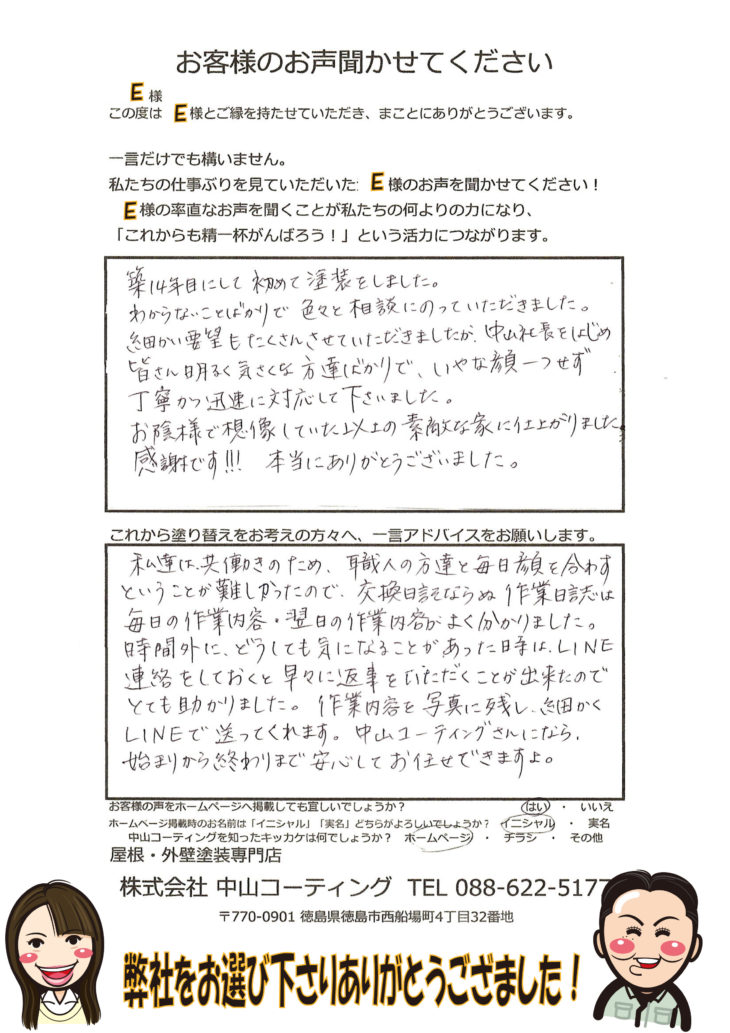 お客様のお声聞かせてください
E様
この度は E様とご縁を持たせていただき、まことにありがとうございます。
一言だけでも構いません。
私たちの仕事ぶりを見ていただいた E様のお声を聞かせてください！
E様の率直なお声を聞くことが私たちの何よりの力になり、
「これからも精一杯がんばろう！」という活力につながります。
築14年目にして初めて塗装をしました。
わからないことばかりで色々と相談にのっていただきました。
細かい要望もたくさんさせていただきましたが、中山社長をはじめ
皆さん明るく気さくな方達ばかりで、いやな顔一つせず
丁寧かつ迅速に対応して下さいました。
お陰様で想像していた以上の素敵な家に仕上がりました。
感謝です!!! 本当にありがとうございました。
これから塗り替えをお考えの方々へ、一言アドバイスをお願いします。
私達は共働きのため、職人の方達と毎日顔を合わす
ということが難しかったので、交換日記ならぬ作業日誌は
毎日の作業内容・翌日の作業内容がよく分かりました。
時間外に、どうしても気になることがあった時は、LINE
連絡をしておくと早々に返事をいただくことが出来たので
とても助かりました。作業内容を写真に残し、細かく
LINEで送ってくれます。中山コーティングさんになら、
始まりから終わりまで安心してお任せできますよ。
お客様の声をホームページへ掲載しても宜しいでしょうか？ はい ・ いいえ
ホームページ掲載時のお名前は「イニシャル」「実名」どちらがよろしいでしょうか？ イニシャル ・ 実名
中山コーティングを知ったキッカケは何でしょうか？ ホームページ ・ チラシ ・ その他
屋根・外壁塗装専門店
株式会社 中山コーティング TEL 088-622-5177
〒770-0901 徳島県徳島市西船場町4丁目32番地
弊社をお選び下さりありがとうござました！